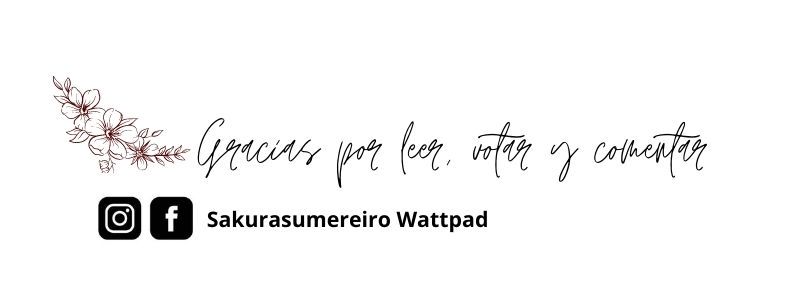 Gracias por leer, votar y comentar
Sakurasumereiro Wattpad